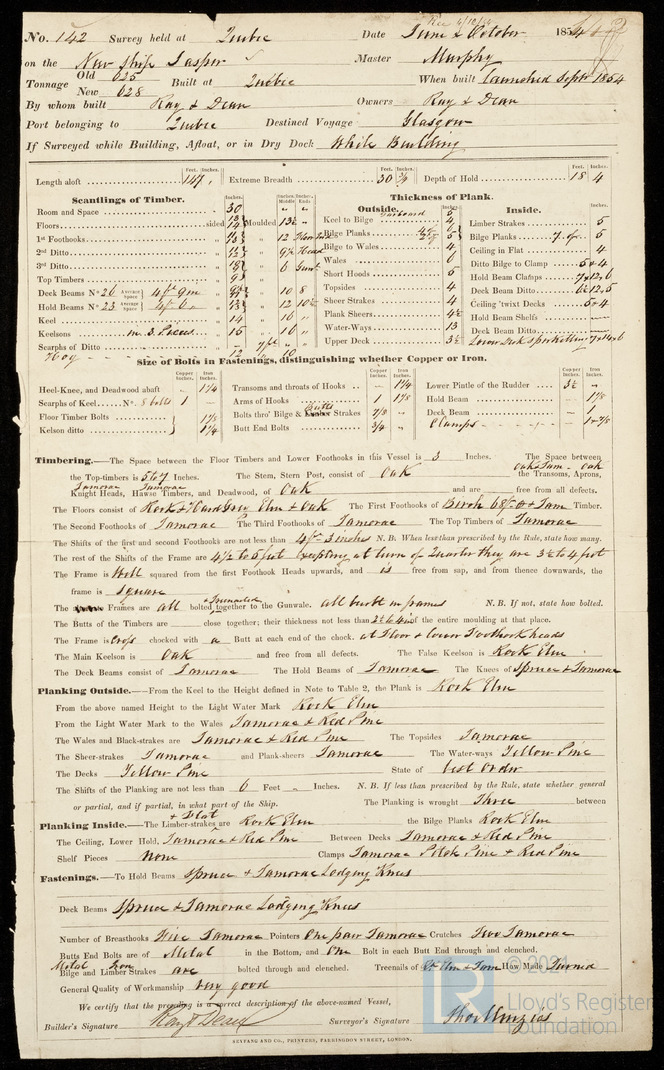 No. 142 Survey held at Quebec Date June & October 1854
on the New Ship Jasper Master Murphy
Tonnage Old 625 New 628 Built at Quebec When built Launched Septr 1854
By whom built Ray & Dean Owners Ray & Dean
Port belonging to Quebec Destined Voyage Glasgow
If Surveyed while Building, Afloat, or in Dry Dock While Building
Feet. Inches. Feet. Inches. Feet. Inches.
Length aloft 147 Extreme Breadth 30 Depth of Hold 18 4
Scantlings of Timber.
Inches. Inches. Middle Inches. Ends
Room and Space 30
Floors sided Moulded 13½
1st Foothooks 12
2nd Ditto
3rd Ditto 6
Top Timbers
Deck Beams No 26 Average Space 10 8
Hold Beams No 23 Average Space 12 10½
Keel 14 16
Keelsons in 3 Pieces 15 16
Scarphs of Ditto
Thickness of Plank.
Outside. Inches.
Keel to Bilge
Bilge Planks
Bilge to Wales 4
Wales 6
Short Hoods 5
Topsides 4
Sheer Strakes 4
Plank Sheers 4½
Water-Ways 13
Upper Deck 3½
Inside. Inches.
Limber Strakes 5
Bilge Planks 5
Ceiling in Flat 4
Ditto Bilge to Clamp 5 & 4
Hold Beam Clamps
Deck Beam Ditto
Ceiling 'twixt Decks 5 & 4
Hold Beam Shelfs
Deck Beam Ditto
Size of Bolts in Fastenings, distinguishing whether Copper or Iron.
Copper Inches. Iron Inches. Copper Inches. Iron Inches. Copper Inches. Iron Inches.
Heel-Knee, and Deadwood abaft 1¼
Scarphs of Keel No. 8 bolts 1
Floor Timber Bolts 1⅛
Kelson ditto 1¼
Transoms and throats of Hooks 1¼
Arms of Hooks 1 1⅛
Bolts thro' Bilge & Strakes 7/8
Butt End Bolts 3/4
Lower Pintle of the Rudder 3½
Hold Beam 1⅛
Deck Beam 1
Clamps
Timbering.—The Space between the Floor Timbers and Lower Foothooks in this Vessel is 3 Inches. The Space between
the Top-timbers is 5 to 7 Inches. The Stem, Stern Post, consist of Oak the Transoms, Aprons,
Knight Heads, Hawse Timbers, and Deadwood, of Oak and are free from all defects.
The Floors consist of Rock & Hard Grey Elm & Oak The First Foothooks of Birch Timber.
The Second Foothooks of Tamorac The Third Foothooks of Tamorac The Top Timbers of Tamorac
The Shifts of the first and second Foothooks are not less than 4 ft 3 inches N. B. When less than prescribed by the Rule, state how many.
The rest of the Shifts of the Frame are 4½ to 5 feet Excepting at turn of Quarter they are 3½ to 4 feet
The Frame is Well squared from the first Foothook Heads upwards, and is free from sap, and from thence downwards, the
frame is Square
The Frames are all bolted together to the Gunwale. all built in frames N. B. If not, state how bolted.
The Butts of the Timbers are close together; their thickness not less than of the entire moulding at that place.
The Frame is chocked with a Butt at each end of the chock. at Floor & lower Foothook heads
The Main Keelson is Oak and free from all defects. The False Keelson is Rock Elm
The Deck Beams consist of Tamorac The Hold Beams of Tamorac The Knees of Spruce & Tamorac
Planking Outside.—From the Keel to the Height defined in Note to Table 2, the Plank is Rock Elm
From the above named Height to the Light Water Mark Rock Elm
From the Light Water Mark to the Wales Tamorac & Red Pine
The Wales and Black-strakes are Tamorac & Red Pine The Topsides Tamorac
The Sheer-strakes Tamorac and Plank-sheers Tamorac The Water-ways Yellow Pine
The Decks Yellow Pine State of best Order
The Shifts of the Planking are not less than 6 Feet Inches. N. B. If less than prescribed by the Rule, state whether general
or partial, and if partial, in what part of the Ship. The Planking is wrought Three between
Planking Inside.—The Limber-strakes & Flat are Rock Elm the Bilge Planks Rock Elm
The Ceiling, Lower Hold, Tamorac & Red Pine Between Decks Tamorac & Red Pine
Shelf Pieces None Clamps Tamorac Pitch Pine & Red Pine
Fastenings.—To Hold Beams Spruce & Tamorac Lodging Knees
Deck Beams Spruce & Tamorac Lodging Knees
Number of Breasthooks Five Tamorac Pointers One pair Tamorac Crutches Two Tamorac
Butts End Bolts are of Metal in the Bottom, and One Bolt in each Butt End through and clenched.
Metal Iron
Bilge and Limber Strakes are bolted through and clenched. Treenails of How Made Turned
General Quality of Workmanship Very good
We certify that the preceding is a correct description of the above-named Vessel,
Builder's Signature Ray & Dean Surveyor's Signature Thos Menzies
SEYFANG AND CO., PRINTERS, FARRINGDON STREET, LONDON.
© 2021
Lloyd's Register
Foundation
LR